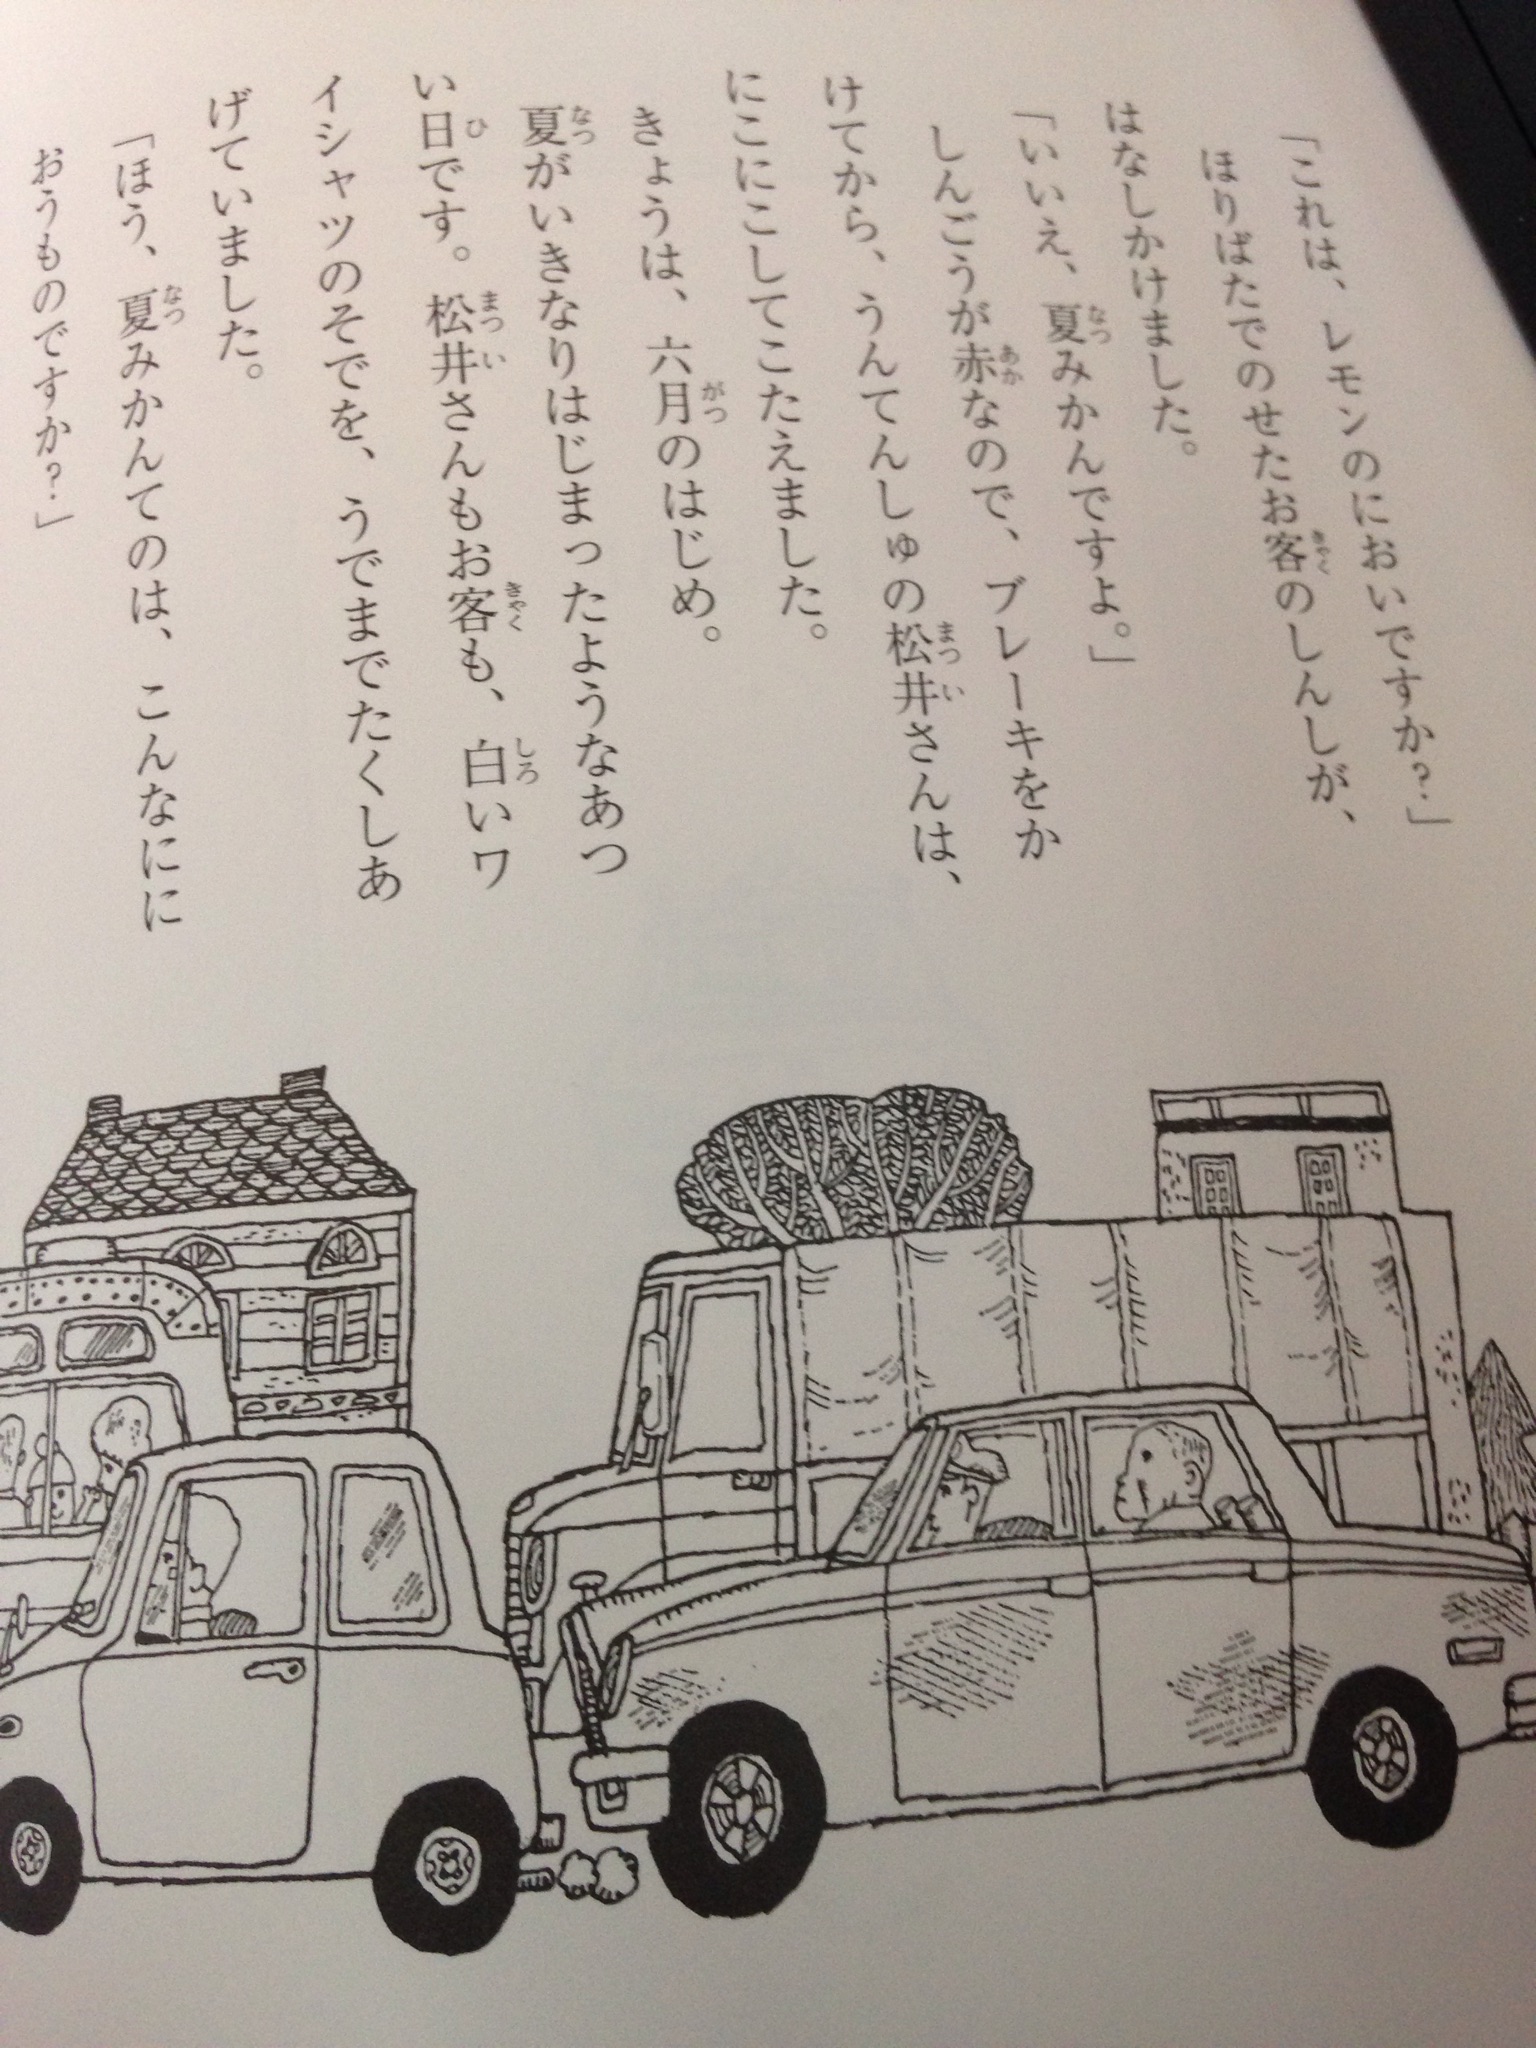 「これは、レモンのにおいですか？」
ほりばたでのせたお客のしんしが、
はなしかけました。
「いいえ、夏みかんですよ。」
しんごうが赤なので、ブレーキをか
けてから、うんてんしゅの松井さんは、
にこにこしてこたえました。
きょうは、六月のはじめ。
夏がいきなりはじまったようなあつ
い日です。松井さんもお客も、白いワ
イシャツのそでを、うでまでたくしあ
げていました。
「ほう、夏みかんてのは、こんなにに
おうものですか？」